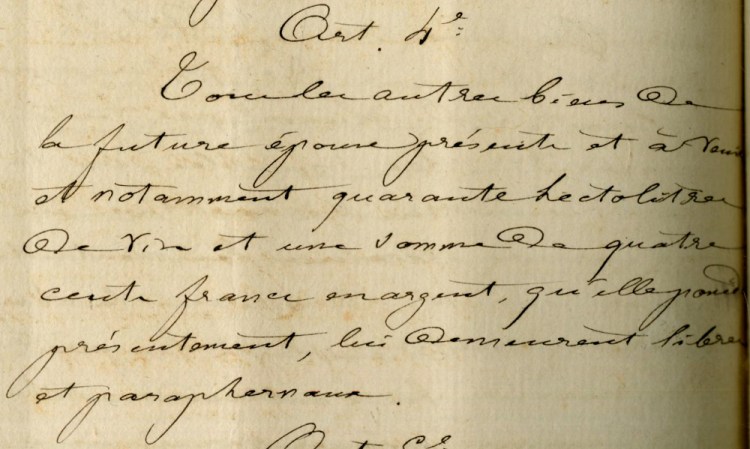 Art. 4e
Tous les autres biens de
la future épouse présents et à venir
et notamment quarante hectolitres
de vin et une somme de quatre
cents francs en argent, qu'elle possède
présentement, lui demeurent libres
et paraphernaux.
Art.